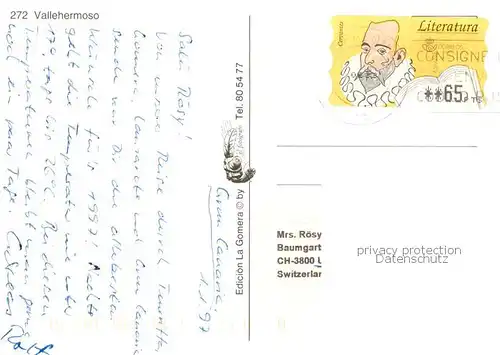 272 Vallehermoso
Gran Canaria,
1.1.97
Salü Rösy!
Von unserer Reise durch Teneriffa,
Gomera, Lanzarote und Gran Canaria
senden wir Dir die allerbesten
Wünsche für 1997!
geht die Temperatur nie unter
17°, tags bis 26°C. Bei diesen
Temperaturen bleibt man gern
noch ein paar Tage.
Edición La Gomera © by
Tel. 80 54 77
Cervantes
Literatura
CONSIGNE
**65
PTS
Mrs. Rösy
Baumgart
CH-3800 U
Switzerlan
privacy protection
Datenschutz